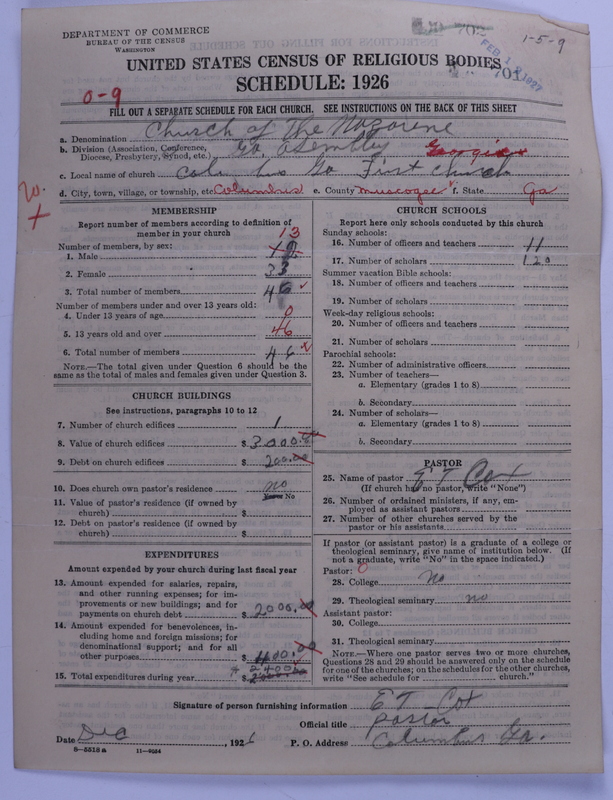 DEPARTMENT OF COMMERCE
BUREAU OF THE CENSUS
WASHINGTON
FEB 1 2 1927
701
1-5-9
UNITED STATES CENSUS OF RELIGIOUS BODIES
SCHEDULE: 1926
0-9
FILL OUT A SEPARATE SCHEDULE FOR EACH CHURCH. SEE INSTRUCTIONS ON THE BACK OF THIS SHEET
a. Denomination Church of The Nazarene
b. Division (Association, Conference, Diocese, Presbytery, Synod, etc.) Ga Asembley Georgia
c. Local name of church Columbus Ga First Church
d. City, town, village, or township, etc. Columbus e. County Muscogee f. State Ga
MEMBERSHIP
Report number of members according to definition of
member in your church
Number of members, by sex: 13
1. Male
2. Female 33
3. Total number of members 46
Number of members under and over 13 years old:
4. Under 13 years of age 0
5. 13 years old and over 46
6. Total number of members 46
NOTE.—The total given under Question 6 should be
same as the total of males and females given under Question 3.
CHURCH BUILDINGS
See instructions, paragraphs 10 to 12
7. Number of church edifices 1
8. Value of church edifices $ 3000.00
9. Debt on church edifices $ 200.00
10. Does church own pastor's residence no
Yes or No
11. Value of pastor's residence (if owned by
church) $
12. Debt on pastor's residence (if owned by
church) $
EXPENDITURES
Amount expended by your church during last fiscal year
13. Amount expended for salaries, repairs,
and other running expenses; for im-
provements or new buildings; and for
payments on church debt $ 2000.00
14. Amount expended for benevolences, in-
cluding home and foreign missions; for
denominational support; and for all
other purposes $ 400.00
15. Total expenditures during year $ 2400
CHURCH SCHOOLS
Report here only schools conducted by this church
Sunday schools:
16. Number of officers and teachers 11
17. Number of scholars 120
Summer vacation Bible schools:
18. Number of officers and teachers
19. Number of scholars
Week-day religious schools:
20. Number of officers and teachers
21. Number of scholars
Parochial schools:
22. Number of administrative officers
23. Number of teachers—
a. Elementary (grades 1 to 8)
b. Secondary
24. Number of scholars—
a. Elementary (grades 1 to 8)
b. Secondary
PASTOR
25. Name of pastor E T Cox
(If church has no pastor, write "None")
26. Number of ordained ministers, if any, em-
ployed as assistant pastors
27. Number of other churches served by the
pastor or his assistants
If pastor (or assistant pastor) is a graduate of a college or
theological seminary, give name of institution below. (If
not a graduate, write "No" in the space indicated.)
Pastor: 0
28. College No
29. Theological seminary no
Assistant pastor:
30. College
31. Theological seminary
NOTE.—Where one pastor serves two or more churches,
Questions 28 and 29 should be answered only on the schedule
for one of the churches; on the schedules for the other churches,
write "See schedule for church."
Signature of person furnishing information E T Cox
Official title Pastor
Date Dec, 1926 P. O. Address Columbus Ga.
8-5518 a 11-9024